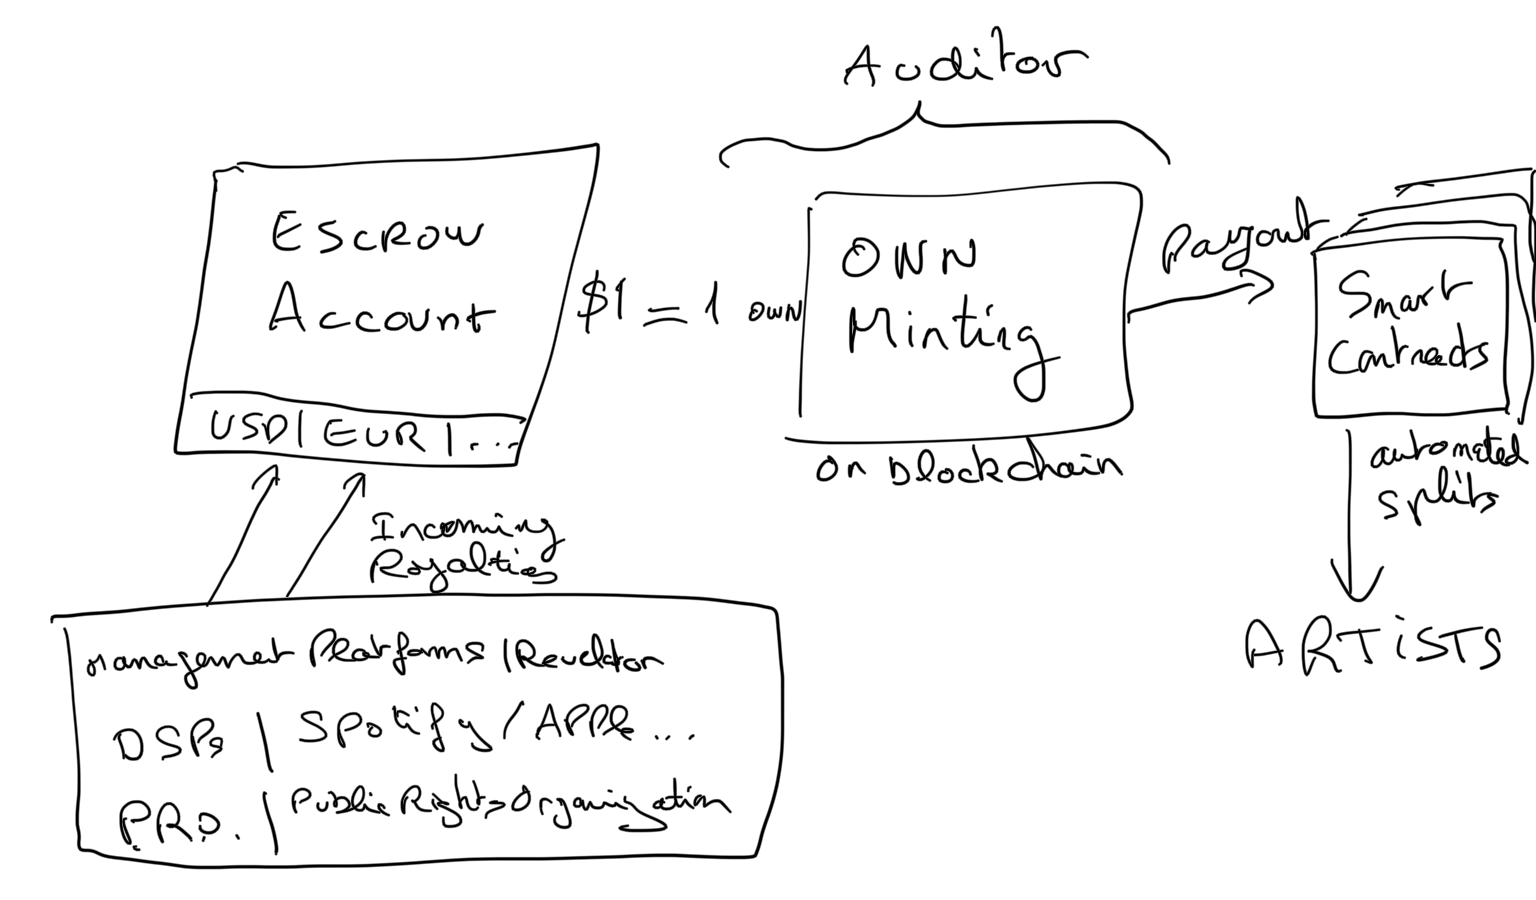 Auditor
Escrow
Account
USD | EUR | ...
$1 = 1 OWN
OWN
Minting
on blockchain
Payout
Smart
Contracts
automated
splits
ARTISTS
Incoming
Royalties
Management Platforms | Revelator
DSPs | Spotify / APPle ...
P.R.O. | Public Rights Organization